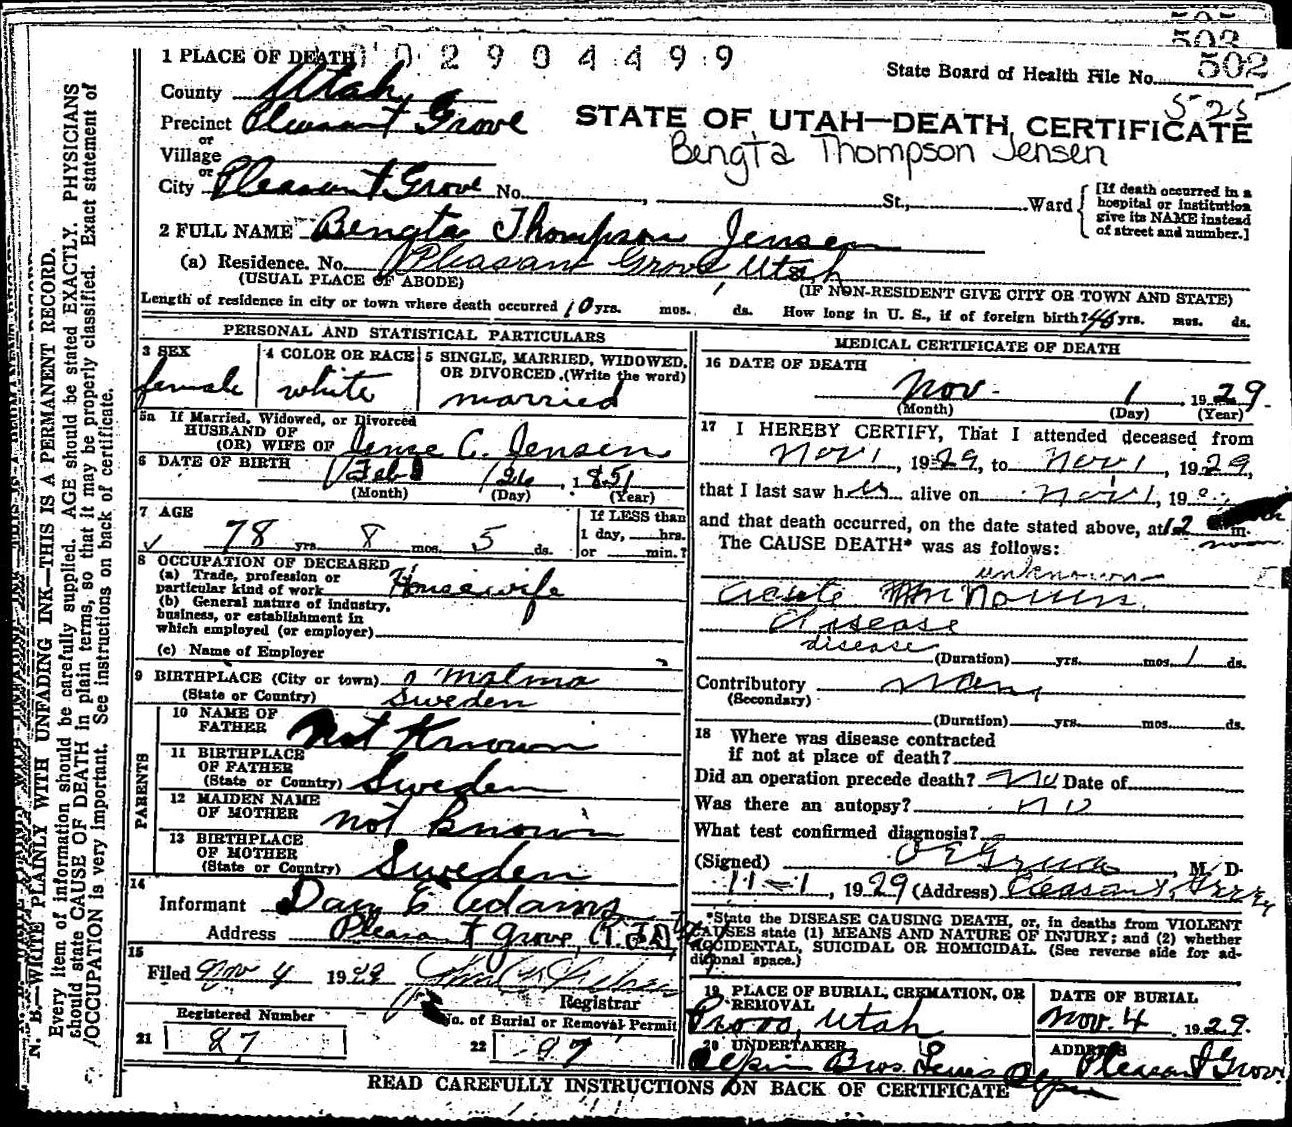 505
503
1 PLACE OF DEATH 0 0 2 9 0 4 4 9 9
State Board of Health File No. 502
525
County Utah
Precinct Pleasant Grove
STATE OF UTAH—DEATH CERTIFICATE
or
Village
Bengta Thompson Jensen
or
City Pleasant Grove No. , St., Ward
[If death occurred in a
hospital or institution
give its NAME instead
of street and number.]
2 FULL NAME Bengta Thompson Jensen
(a) Residence. No. Pleasant Grove, Utah
(USUAL PLACE OF ABODE) (IF NON-RESIDENT GIVE CITY OR TOWN AND STATE)
Length of residence in city or town where death occurred 10 yrs. mos. ds. How long in U. S., if of foreign birth? 46 yrs. mos. ds.
PERSONAL AND STATISTICAL PARTICULARS
3 SEX
female
4 COLOR OR RACE
white
5 SINGLE, MARRIED, WIDOWED,
OR DIVORCED. (Write the word)
married
5a If Married, Widowed, or Divorced
HUSBAND OF
(OR) WIFE OF C. Jensen
6 DATE OF BIRTH Feb 26, 1851
(Month) (Day) (Year)
7 AGE
78 yrs. 8 mos. 5 ds.
If LESS than
1 day, hrs.
or min.?
8 OCCUPATION OF DECEASED
(a) Trade, profession or
particular kind of work Housewife
(b) General nature of industry,
business, or establishment in
which employed (or employer)
(c) Name of Employer
9 BIRTHPLACE (City or town) Malmo
(State or Country) Sweden
PARENTS
10 NAME OF
FATHER Not Known
11 BIRTHPLACE
OF FATHER
(State or Country) Sweden
12 MAIDEN NAME
OF MOTHER not known
13 BIRTHPLACE
OF MOTHER
(State or Country) Sweden
14
Informant Dan E Adams
Address Pleasant Grove,
15
Filed Nov 4 1929
Registrar
Registered Number
21 87
No. of Burial or Removal Permit
22 97
MEDICAL CERTIFICATE OF DEATH
16 DATE OF DEATH
Nov. 1 1929.
(Month) (Day) (Year)
17 I HEREBY CERTIFY, That I attended deceased from
Nov 1, 1929, to Nov 1, 1929,
that I last saw her alive on Nov 1, 19
and that death occurred, on the date stated above, at 12 m.
noon
The CAUSE DEATH* was as follows:
unknown
acute
disease
disease
(Duration) yrs. mos. 1 ds.
Contributory
(Secondary)
(Duration) yrs. mos. ds.
18 Where was disease contracted
if not at place of death?
Did an operation precede death? No Date of
Was there an autopsy? no
What test confirmed diagnosis?
(Signed) , M. D.
11-1, 1929 (Address) Pleasant Grove
*State the DISEASE CAUSING DEATH, or, in deaths from VIOLENT
CAUSES state (1) MEANS AND NATURE OF INJURY; and (2) whether
ACCIDENTAL, SUICIDAL OR HOMICIDAL. (See reverse side for ad-
ditional space.)
19 PLACE OF BURIAL, CREMATION, OR
REMOVAL
Provo, Utah
DATE OF BURIAL
Nov. 4 1929.
20 UNDERTAKER
Bros.
ADDRESS
Pleasant Grove
READ CAREFULLY INSTRUCTIONS ON BACK OF CERTIFICATE
N. B.—WRITE PLAINLY WITH UNFADING INK—THIS IS A PERMANENT RECORD.
Every item of information should be carefully supplied. AGE should be stated EXACTLY. PHYSICIANS
should state CAUSE OF DEATH in plain terms, so that it may be properly classified. Exact statement of
OCCUPATION is very important. See instructions on back of certificate.